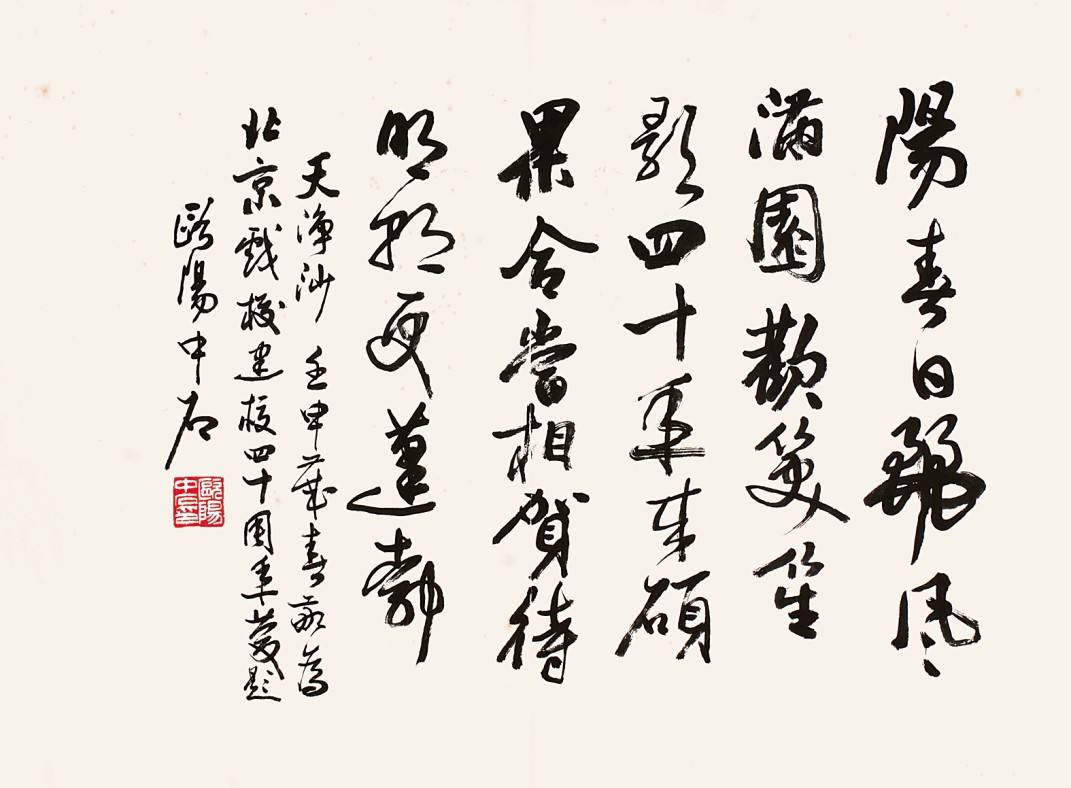 陽春日麗風
滿園歡笑笙
歌四十年來碩
果合當相賀待
明朝更蓬勃
天淨沙 壬申歲春敬為
北京戲校建校四十周年慶題
歐陽中石
歐陽中石